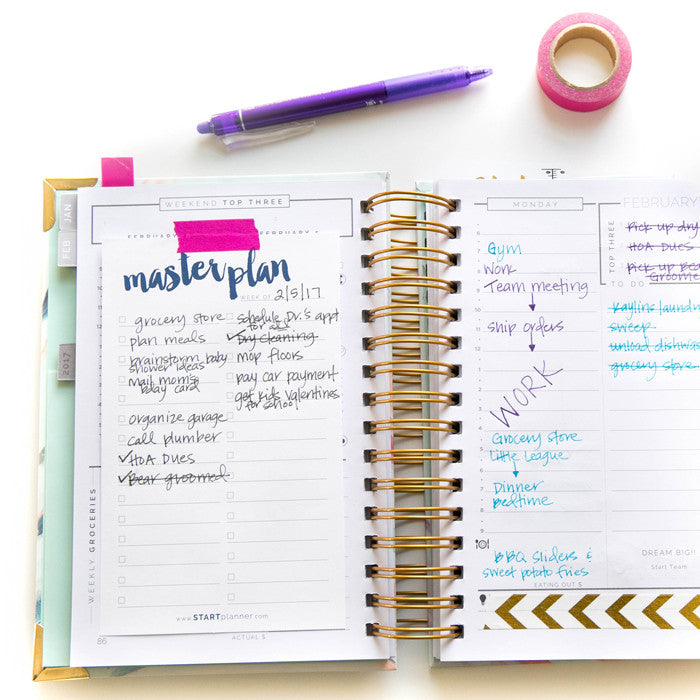 WEEKEND TOP THREE
JAN
FEB
2017
master plan
WEEK OF 2/5/17
grocery store
plan meals
brainstorm baby
shower ideas
mail mom's
bday card
organize garage
call plumber
HOA DUES
Bear groomed
schedule Dr.'s appt
for
Dry cleaning
mop floors
pay car payment
get kids valentines
for school
www.STARTplanner.com
WEEKLY GROCERIES
86
ACTUAL $
MONDAY
Gym
Work
Team meeting
Ship orders
WORK
Grocery store
Little League
Dinner
Bedtime
BBQ Sliders &
sweet potato fries
EATING OUT $
FEBRUARY
TOP THREE
Pick up dry
HOA DUES
Pick up Bear
Groome
TO DO
Kaylin's laundr
sweep
unload dishwas
grocery store
DREAM BIG!!
Start Team